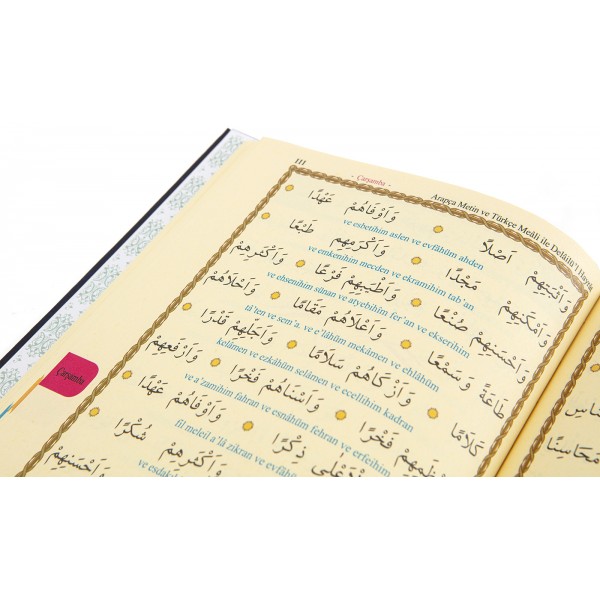 111
- Çarşamba -
Arapça Metin ve Türkçe Meâli ile Delâilü'l
وَاَثْبَتِهِمْ اَصْلًا وَاَوْفَاهُمْ عَهْدًا
ve esbetihim aslen ve evfâhüm ahden
وَاَمْكَنِهِمْ مَجْدًا وَاَكْرَمِهِمْ طَبْعًا
ve emkenihim mecden ve ekramihim tab'an
وَاَحْسَنِهِمْ صُنْعًا وَاَطْيَبِهِمْ فَرْعًا وَاَكْثَرِهِمْ
ve ehsenihim sünan ve atyebihim fer'an ve ekserihim
طَاعَةً وَسَمْعًا وَاَعْلَاهُمْ مَقَامًا وَاَحْلَاهُمْ
tâ'ten ve sem'a. ve e'lâhüm mekâmen ve ehlâhüm
كَلَامًا وَاَزْكَاهُمْ سَلَامًا وَاَجَلِّهِمْ قَدْرًا
kelâmen ve ezkâhüm selâmen ve ecellihim kadran
فَخْرًا وَاَسْنَاهُمْ فَخْرًا وَاَرْفَعِهِمْ
ve a'zamihim fahran ve esnâhüm fehran ve erfeihim
ذِكْرًا وَاَوْفَاهُمْ عَهْدًا
fil meleil a'lâ zikran ve evfâhüm
وَاَكْثَرِهِمْ شُكْرًا
وَاَحْسَنِهِمْ
Çarşamba
مَحَاسِنًا